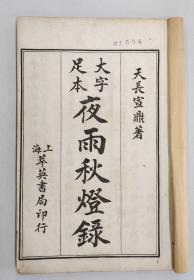 天長宣鼎著
大字
足本
夜雨秋燈錄
上
海
萃英書局印行